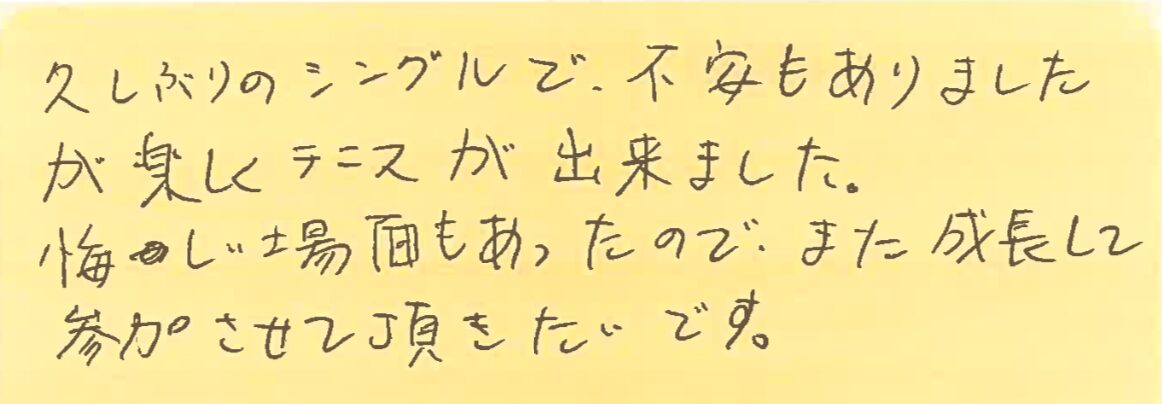 久しぶりのシングルで、不安もありました
が楽しくテニスが出来ました。
悔しい場面もあったので、また成長して
参加させて頂きたいです。